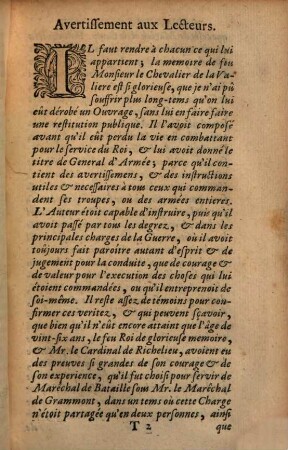 Avertissement aux Lecteurs.
IL faut rendre à chacun ce qui lui
appartient, la memoire de feu
Monsieur le Chevalier de la Va-
liere est si glorieuse, que je n'ai pû
souffrir plus long-tems qu'on lui
eût dérobé un Ouvrage, sans lui en faire faire
une restitution publique. Il l'avoit composé
avant qu'il eût perdu la vie en combattant
pour le service du Roi, & lui avoit donné le
titre de General d'Armée; parce qu'il con-
tient des avertissemens, & des instructions
utiles & necessaires à tous ceux qui comman-
dent ses troupes, ou des armées entieres.
L'Auteur étoit capable d'instruire, puis qu'il
avoit passé par tous les degrez, & dans les
principales charges de la Guerre, où il avoit
toûjours fait paroitre autant d'esprit & de
jugement pour la conduite, que de courage &
de valeur pour l'execution des choses qui lui
étoient commandées, ou qu'il entreprenoit de
soi-même. Il reste assez de témoins pour con-
firmer ces veritez, & qui peuvent sçavoir,
que bien qu'il n'eût encore attaint que l'âge de
vint-six ans, le feu Roi de glorieuse memoire,
& Mr. le Cardinal de Richelieu, avoient eu
des preuves si grandes de son courage & de
son experience, qu'il fut choisi pour servir de
Maréchal de Bataille sous Mr. le Maréchal
de Grammont, dans un tems où cette Charge
n'étoit partagée qu'en deux personnes, ainsi
T 2 que